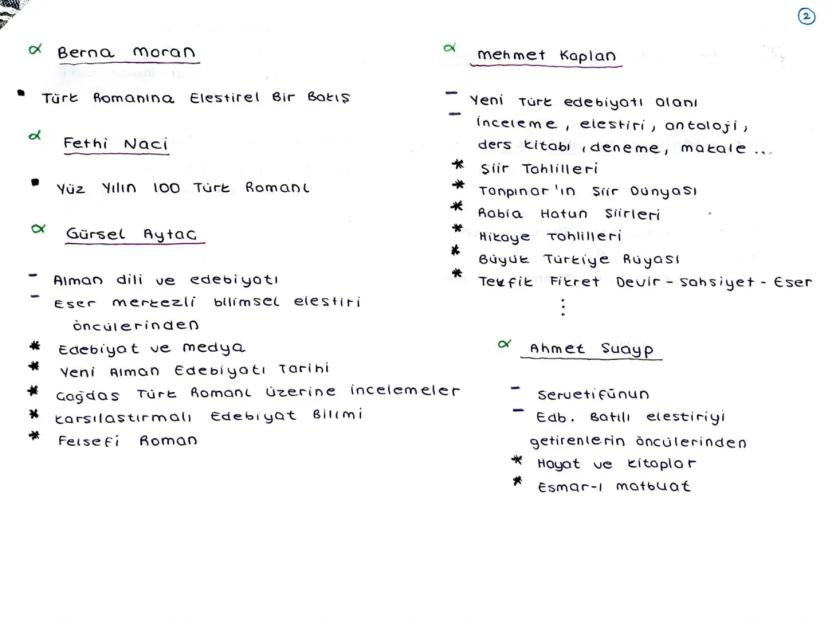 2
α Berna Moran
▪ Türk Romanına Elestirel Bir Bakış
α Fethi Naci
▪ Yüz Yılın 100 Türk Romanı
α Gürsel Aytac
- Alman dili ve edebiyatı
- Eser merkezli bilimsel elestiri
öncülerinden
* Edebiyat ve medya
* Yeni Alman Edebiyatı Tarihi
* Cağdas Türk Romanı üzerine incelemeler
* Karsılastırmalı Edebiyat Bilimi
* Felsefi Roman
α Mehmet Kaplan
- Yeni Türk edebiyatı alanı
- İnceleme, elestiri, antoloji,
ders kitabı, deneme, makale ...
* Siir Tahlilleri
* Tanpınar'ın Siir Dünyası
* Rabia Hatun Siirleri
* Hikaye Tahlilleri
* Büyük Türkiye Rüyası
* Tevfik Fikret Devir - Sahsiyet - Eser
⋮
α Ahmet Suayp
- Servetifünun
- Edb. Batılı elestiriyi
getirenlerin öncülerinden
* Hayat ve Kitaplar
* Esmar-ı matbuat